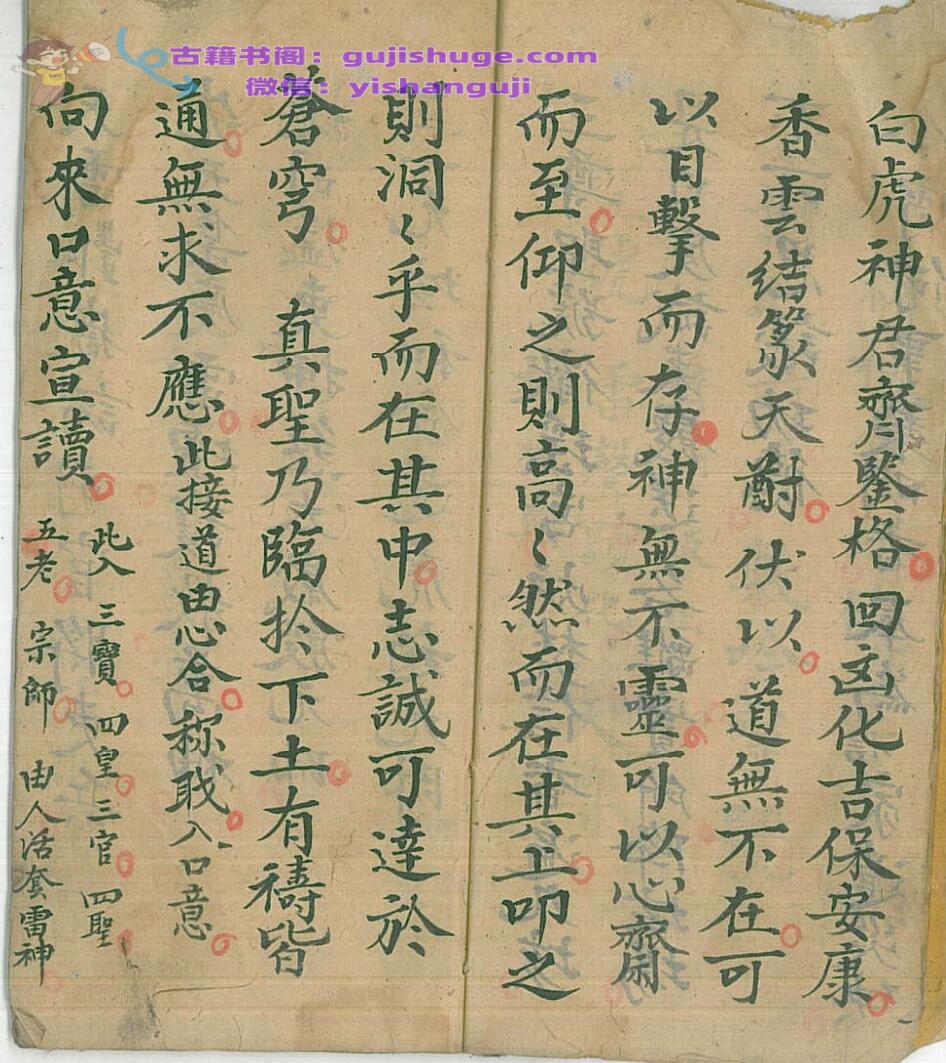 古籍书阁：gujishuge.com
微信：yishanguji
白虎神君齊鑒格回凶化吉保安康
香雲結篆天尊伏以道無不在可
以目擊而存神無不靈可以心齋
而至仰之則高〻然而在其上叩之
則洞〻乎而在其中志誠可達於
蒼穹 真聖乃臨於下土有禱皆
通無求不應此接道由心合称職入口意
向來口意宣讀
此入 三寶 四皇 三官 四聖
五老 宗師 由人活套雷神